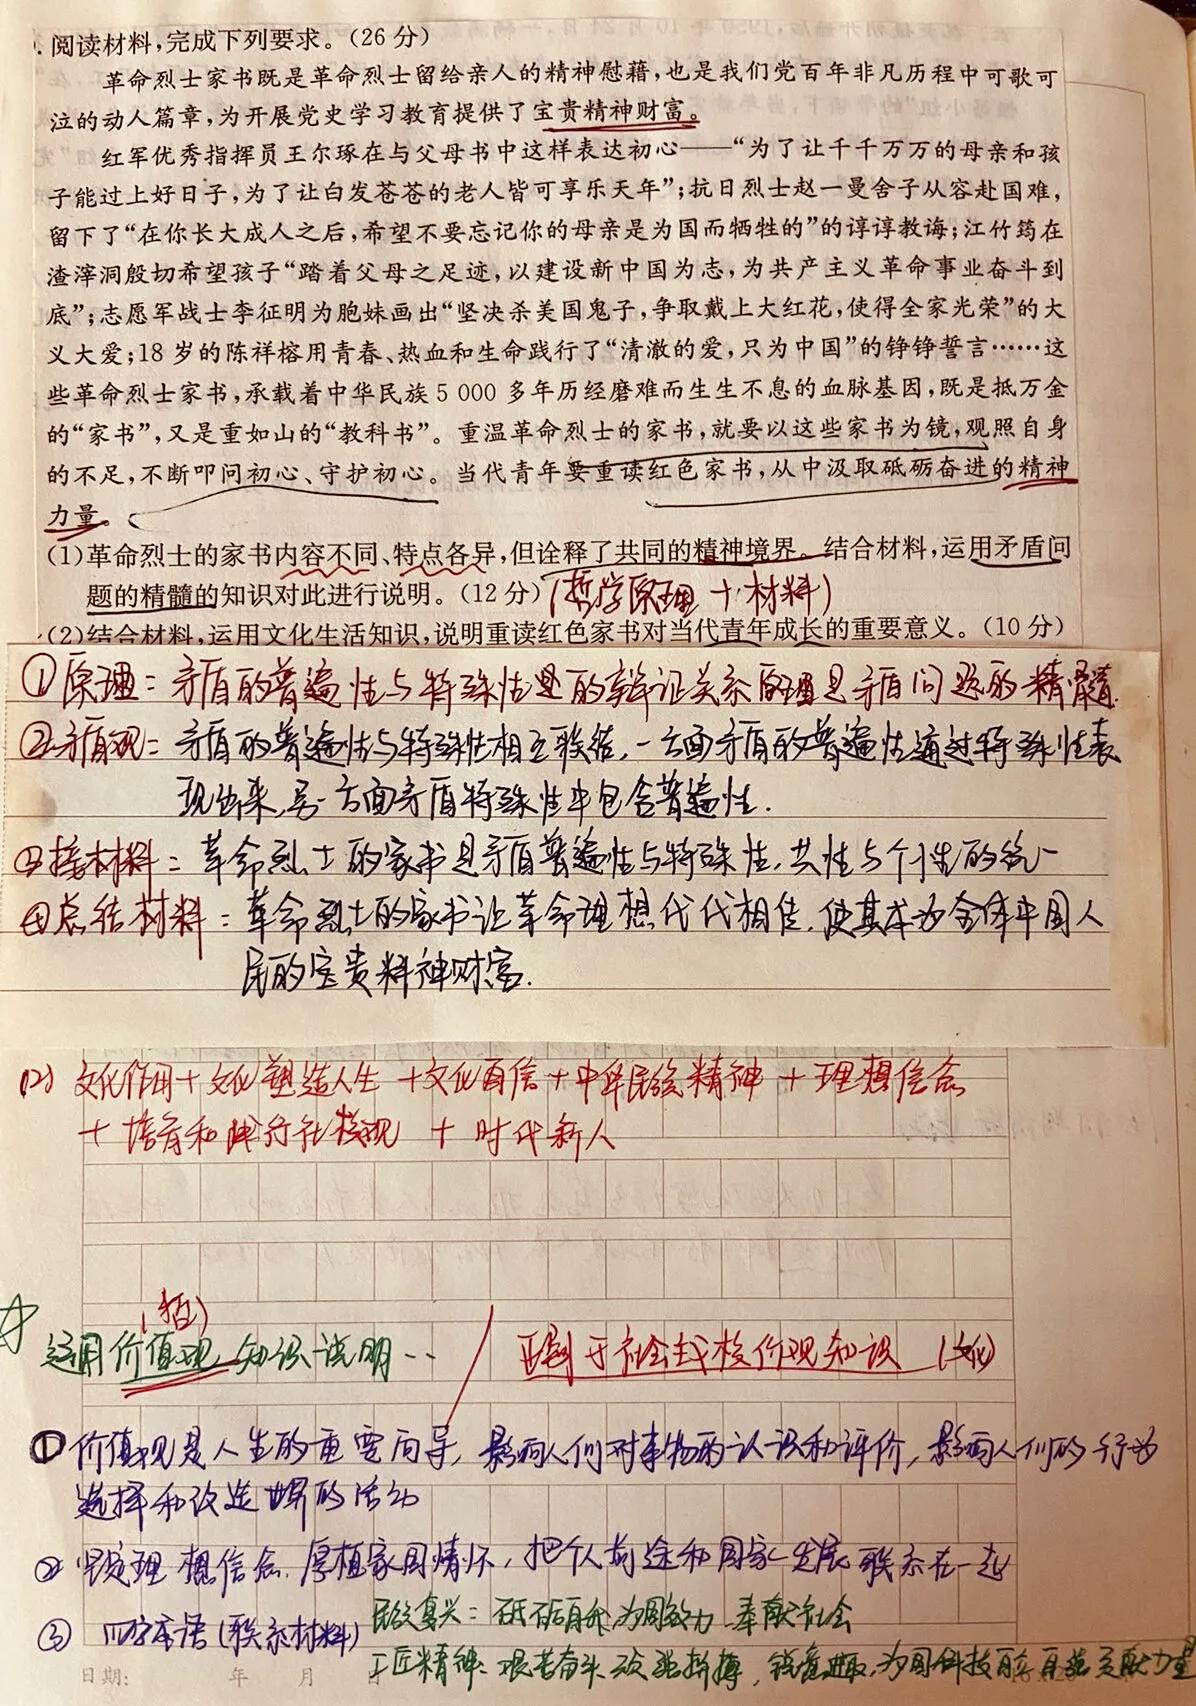 . 阅读材料,完成下列要求。(26 分)
革命烈士家书既是革命烈士留给亲人的精神慰藉,也是我们党百年非凡历程中可歌可
泣的动人篇章,为开展党史学习教育提供了宝贵精神财富。
红军优秀指挥员王尔琢在与父母书中这样表达初心——“为了让千千万万的母亲和孩
子能过上好日子,为了让白发苍苍的老人皆可享乐天年”;抗日烈士赵一曼舍子从容赴国难,
留下了“在你长大成人之后,希望不要忘记你的母亲是为国而牺牲的”的谆谆教诲;江竹筠在
渣滓洞殷切希望孩子“踏着父母之足迹,以建设新中国为志,为共产主义革命事业奋斗到
底”;志愿军战士李征明为胞妹画出“坚决杀美国鬼子,争取戴上大红花,使得全家光荣”的大
义大爱;18 岁的陈祥榕用青春、热血和生命践行了“清澈的爱,只为中国”的铮铮誓言……这
些革命烈士家书,承载着中华民族 5 000 多年历经磨难而生生不息的血脉基因,既是抵万金
的“家书”,又是重如山的“教科书”。重温革命烈士的家书,就要以这些家书为镜,观照自身
的不足,不断叩问初心、守护初心。当代青年要重读红色家书,从中汲取砥砺奋进的精神
力量。
(1)革命烈士的家书内容不同、特点各异,但诠释了共同的精神境界。结合材料,运用矛盾问
题的精髓的知识对此进行说明。(12 分)(哲学原理 + 材料)
(2)结合材料,运用文化生活知识,说明重读红色家书对当代青年成长的重要意义。(10 分)
①原理：矛盾的普遍性与特殊性是的辩证关系原理是矛盾问题的精髓.
②矛盾观：矛盾的普遍性与特殊性相互联结,一方面矛盾的普遍性通过特殊性表
现出来,另一方面矛盾特殊性中包含普遍性.
③接材料：革命烈士的家书是矛盾普遍性与特殊性,共性与个性的统一
④总结材料：革命烈士的家书让革命理想代代相传,使其成为全体中国人
民的宝贵精神财富.
(2) 文化作用+文化塑造人生+文化自信+中华民族精神+理想信念
+培育和践行社核观+时代新人
(哲)
运用价值观知识说明..
区别于社会主义核价观知识 (文化)
①价值观是人生的重要向导,影响人们对事物的认识和评价,影响人们的行为
选择和改造世界的活动
②坚定理想信念,厚植家国情怀,把个人前途和国家发展联系在一起
③ 四字术语(联系材料) 民族复兴：砥砺前行,为国效力 奉献社会
工匠精神：艰苦奋斗 顽强拼搏,锐意进取,为国科技自立自强贡献力量
日期: 年 月 日